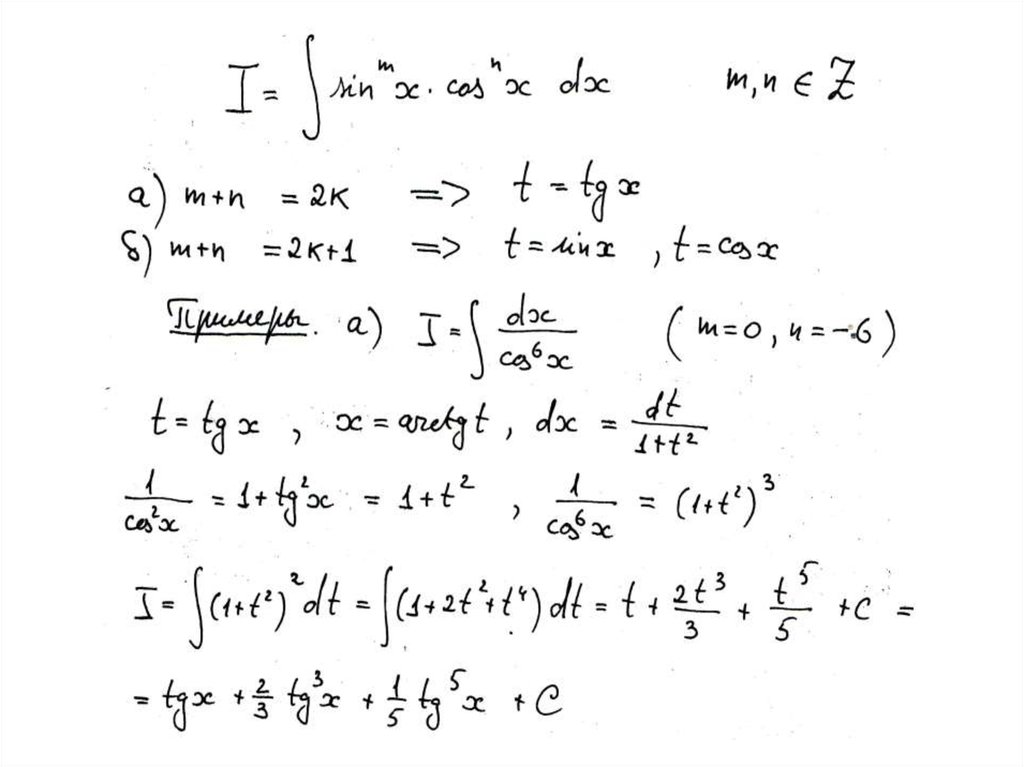 I = ∫ sin^m x · cos^n x dx m, n ∈ Z
а) m+n = 2k => t = tg x
б) m+n = 2k+1 => t = sin x , t = cos x
Примеры. а) I = ∫ dx/cos^6 x (m=0, n=-6)
t = tg x , x = arctg t , dx = dt/(1+t^2)
1/cos^2 x = 1+tg^2 x = 1+t^2 , 1/cos^6 x = (1+t^2)^3
I = ∫(1+t^2)^2 dt = ∫(1+2t^2+t^4) dt = t + 2t^3/3 + t^5/5 + C =
= tg x + 2/3 tg^3 x + 1/5 tg^5 x + C